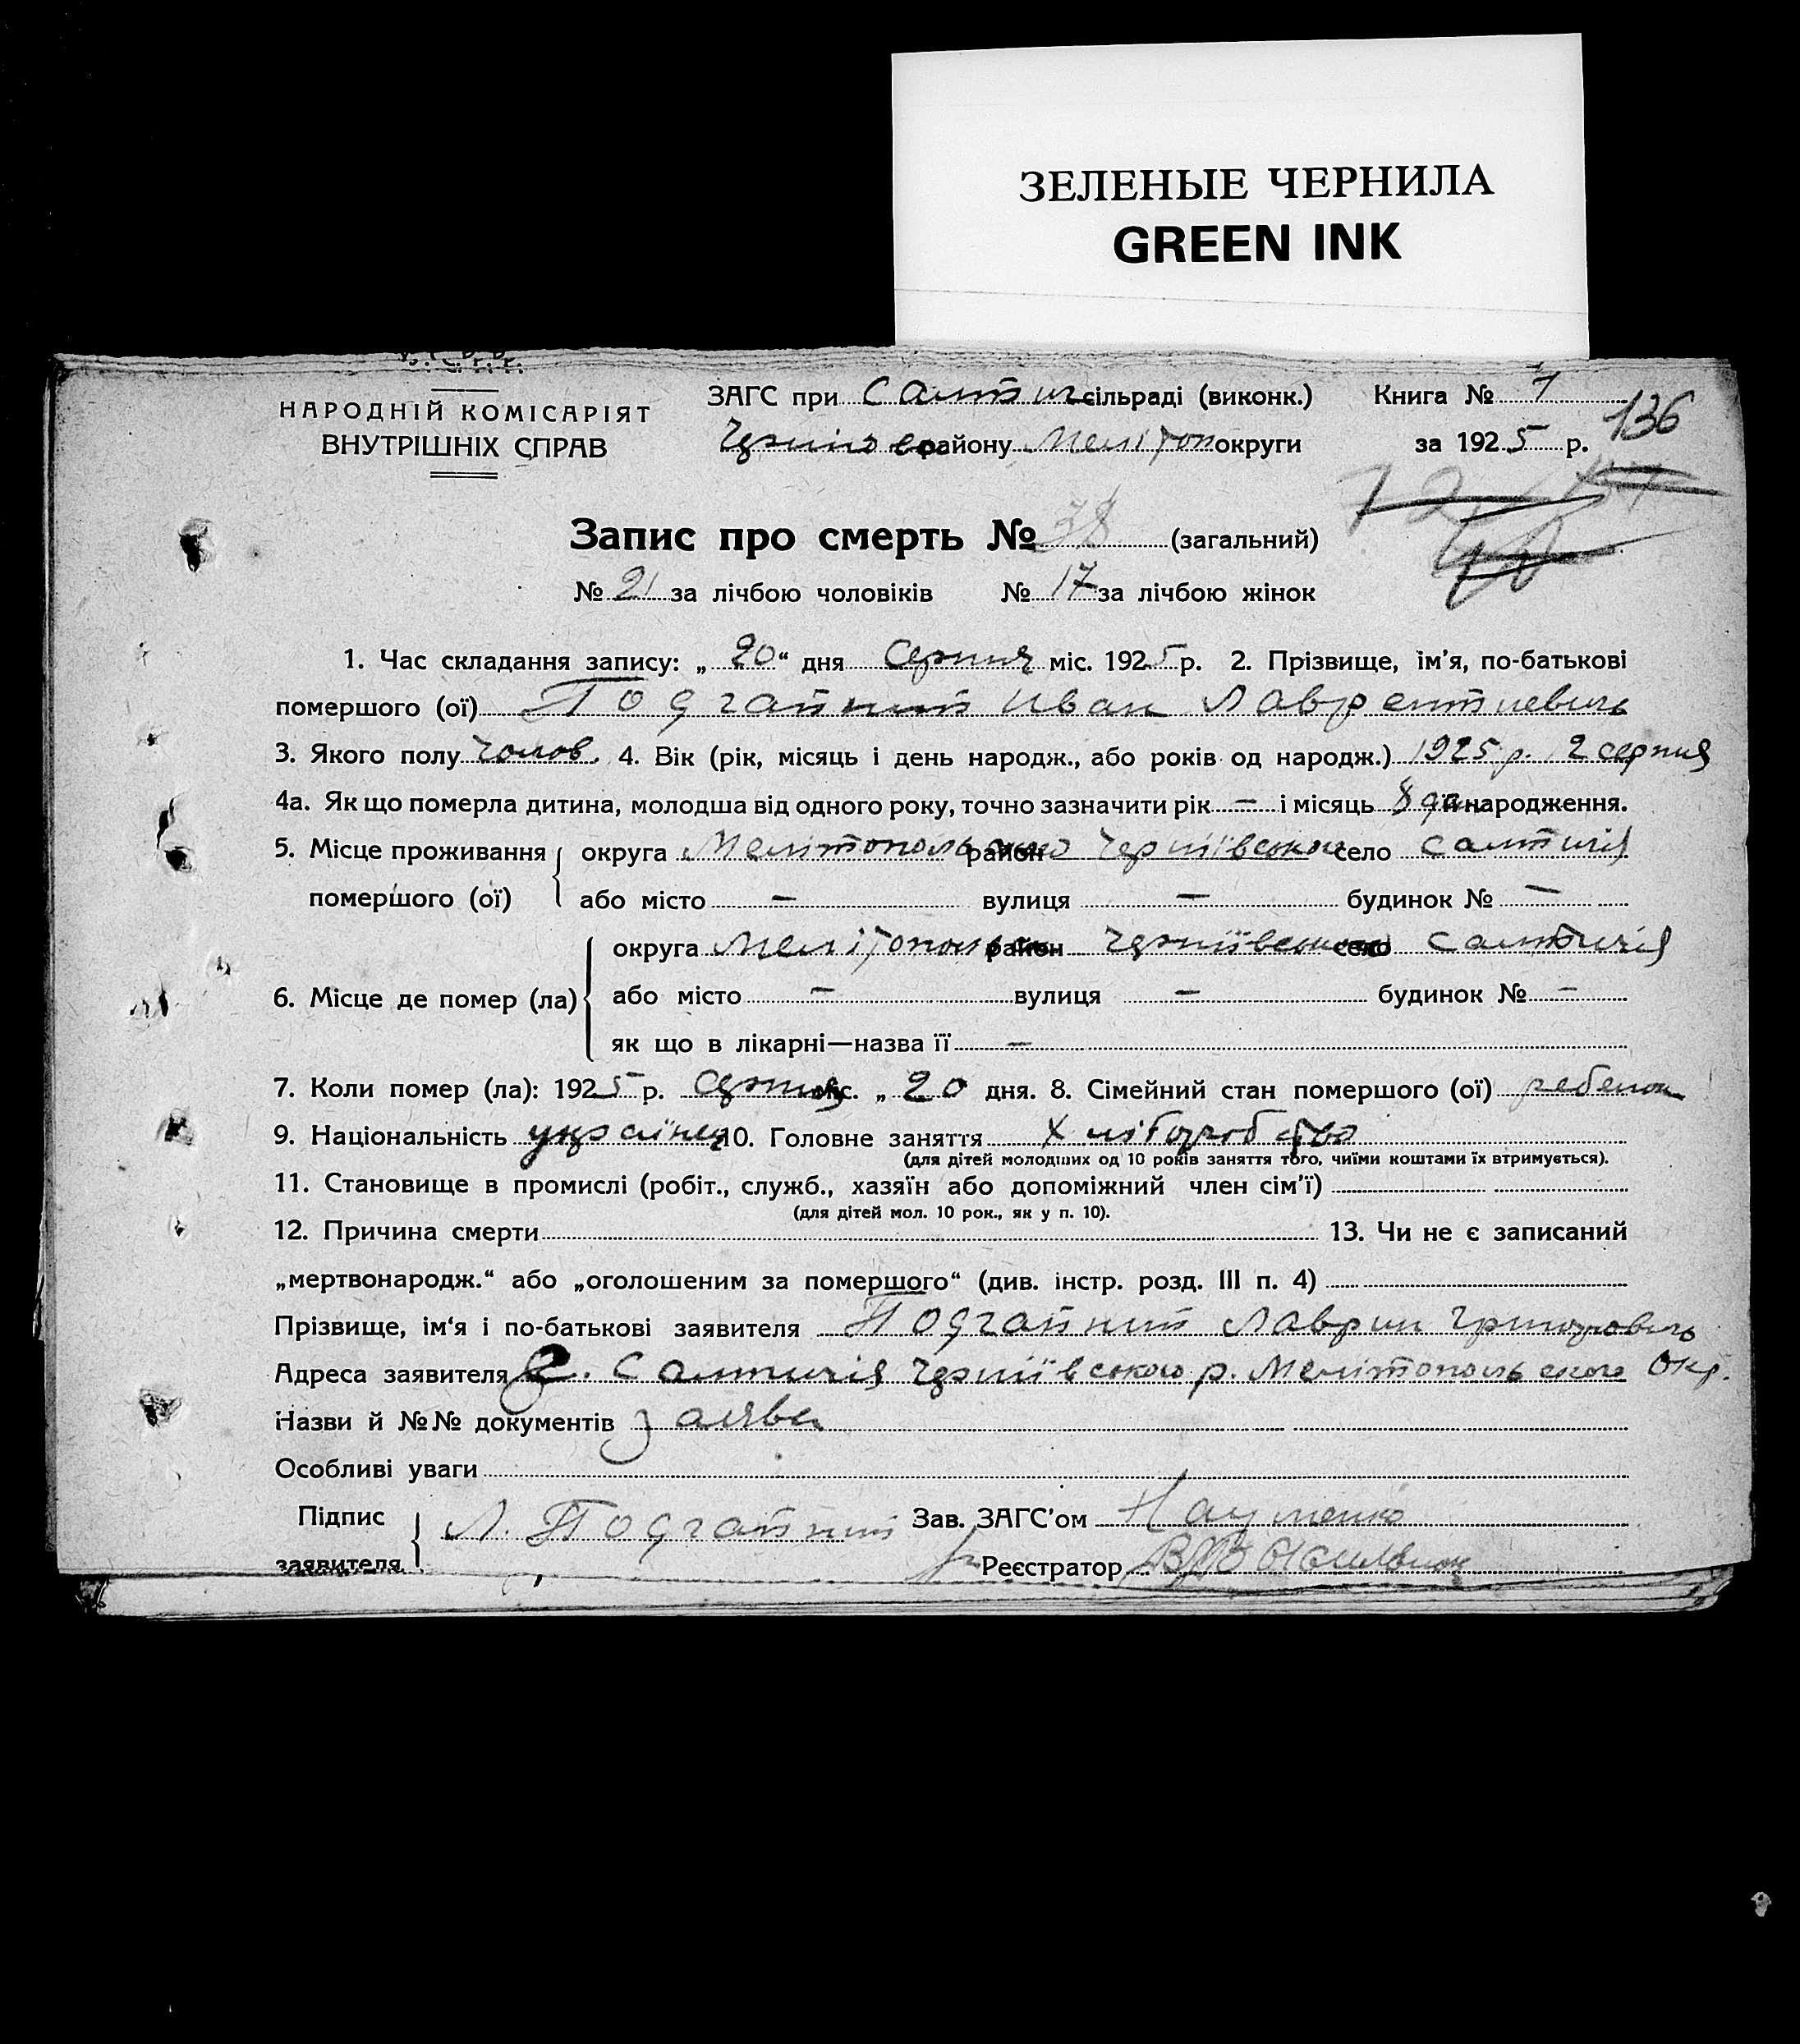 ЗЕЛЕНЫЕ ЧЕРНИЛА
GREEN INK
НАРОДНІЙ КОМІСАРІЯТ
ВНУТРІШНІХ СПРАВ
ЗАГС при Салтич сільраді (виконк.)
району Мелітоп округи
Книга № 1
за 1925 р.
136
Запис про смерть № 38 (загальний)
№ 21 за лічбою чоловіків № 17 за лічбою жінок
1. Час складання запису: „ 20 “ дня Серпня міс. 1925 р. 2. Прізвище, ім’я, по-батькові
помершого (ої) Подгайний Иван Лаврентиевичь
3. Якого полу чолов. 4. Вік (рік, місяць і день народж., або років од народж.) 1925 р. 2 серпня
4а. Як що померла дитина, молодша від одного року, точно зазначити рік – і місяць й народження.
5. Місце проживання округа Мелітопольского район Черніївського село Салтичія
помершого (ої) або місто – вулиця – будинок № –
округа Меліτопольск район Черніївського село Салтичія
6. Місце де помер (ла) або місто – вулиця – будинок № –
як що в лікарні—назва її –
7. Коли помер (ла): 1925 р. Серпня міс. „ 20 дня. 8. Сімейний стан помершого (ої) ребенок
9. Національність українец 10. Головне заняття Хліборобство
(для дітей молодших од 10 років заняття того, чиїми коштами їх втримується).
11. Становище в промислі (робіт., служб., хазяїн або допоміжний член сім’ї)
(для дітей мол. 10 рок., як у п. 10).
12. Причина смерти 13. Чи не є записаний
„мертвонародж.“ або „оголошеним за помершого“ (див. інстр. розд. III п. 4)
Прізвище, ім‘я і по-батькові заявителя Подгайний Лаврин Григоровичь
Адреса заявителя с. Салтичія Черніївського р. Мелітопольского Окр.
Назви й №№ документів заява
Особливі уваги
Підпис
заявителя Л. Подгайний
Зав. ЗАГС’ом Науменко
Реєстратор